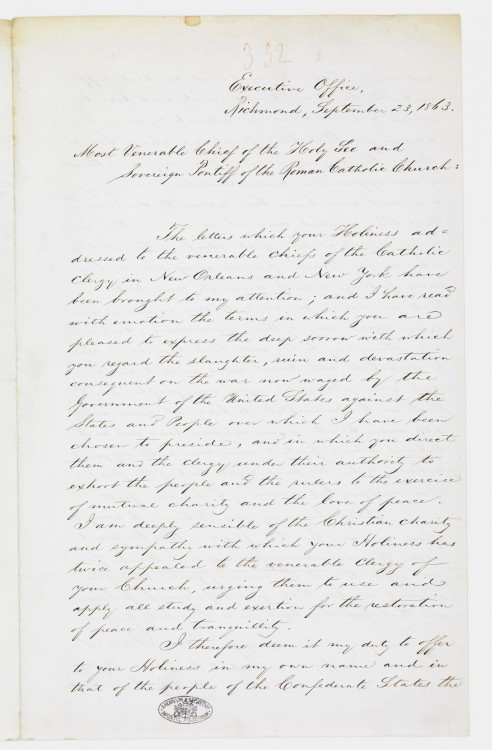 352
Executive Office,
Richmond, September 23, 1863.
Most Venerable Chief of the Holy See and
Sovereign Pontiff of the Roman Catholic Church:
The letters which your Holiness ad=
dressed to the venerable chiefs of the Catholic
clergy in New Orleans and New York have
been brought to my attention; and I have read
with emotion the terms in which you are
pleased to express the deep sorrow with which
you regard the slaughter, ruin and devastation
consequent on the war now waged by the
Government of the United States against the
States and People over which I have been
chosen to preside, and in which you direct
them and the clergy under their authority to
exhort the people and the rulers to the exercise
of mutual charity and the love of peace.
I am deeply sensible of the Christian charity
and sympathy with which your Holiness has
twice appealed to the venerable clergy of
your Church, urging them to use and
apply all study and exertion for the restoration
of peace and tranquillity.
I therefore deem it my duty to offer
to your Holiness in my own name and in
that of the people of the Confederate States the